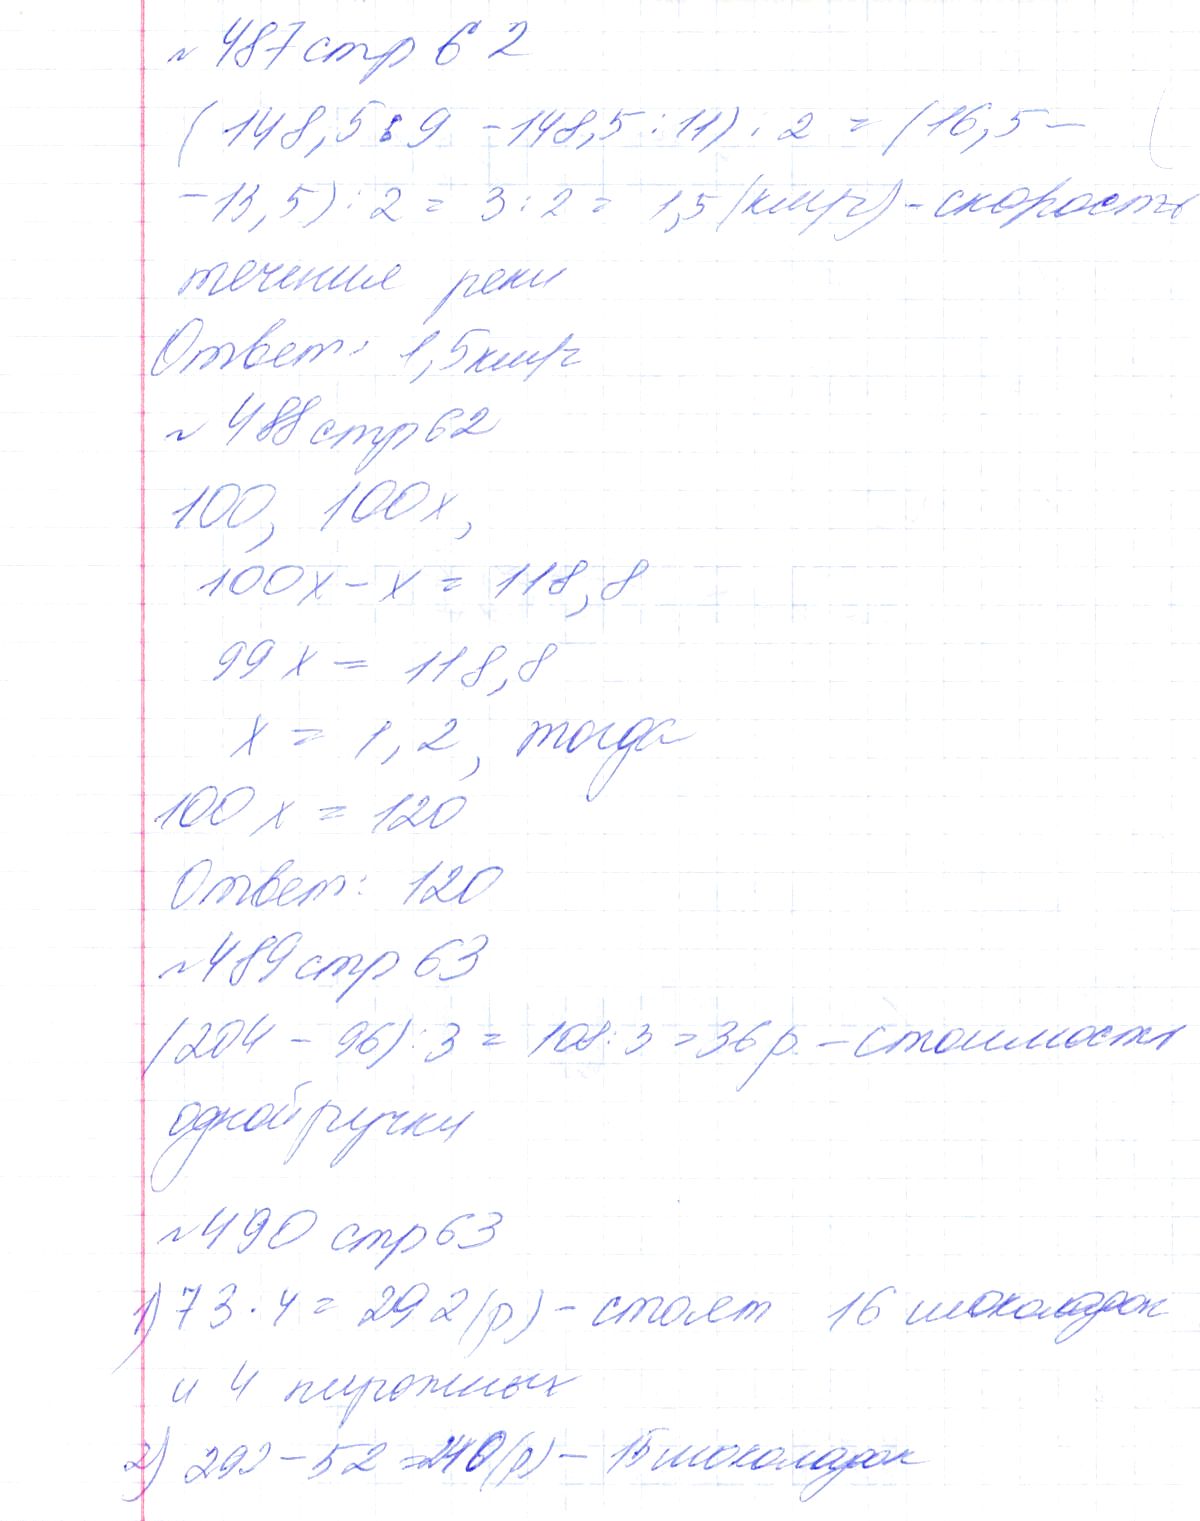 ~ 487 стр 62
(148,5:9 - 148,5:11):2 = (16,5 -
- 13,5):2 = 3:2 = 1,5 (км/ч) - скорость
течения реки
Ответ: 1,5 км/ч
~ 488 стр 62
100, 100x,
100x - x = 118,8
99x = 118,8
x = 1,2, тогда
100x = 120
Ответ: 120
~ 489 стр 63
(204 - 96):3 = 108:3 = 36 р. - стоимость
одной ручки
~ 490 стр 63
1) 73·4 = 292 (р) - стоят 16 шоколадок
и 4 пирожных
2) 292 - 52 = 240 (р) - 15 шоколадок